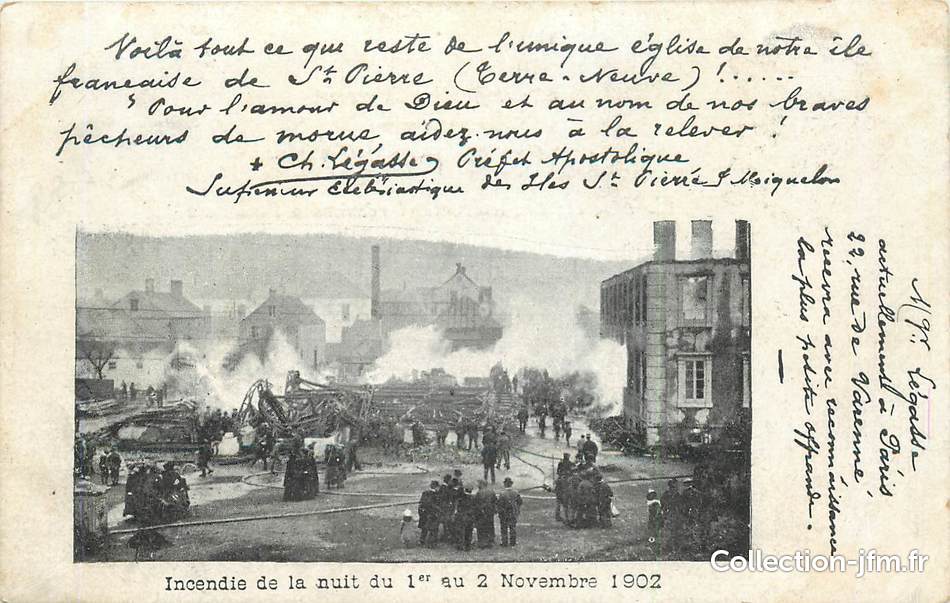 Voilà tout ce que reste de l'unique église de notre île
française de St Pierre (Terre-Neuve) !......
"Pour l'amour de Dieu et au nom de nos braves
pêcheurs de morue, aidez-nous à la relever !
+ Ch. Légasse, Préfet Apostolique
Supérieur Ecclésiastique des Iles St Pierre & Miquelon
Mgr. Légasse
actuellement à Paris
22, rue de Varenne,
recevra avec reconnaissance
la plus petite offrande.
Incendie de la nuit du 1er au 2 Novembre 1902
Collection-jfm.fr